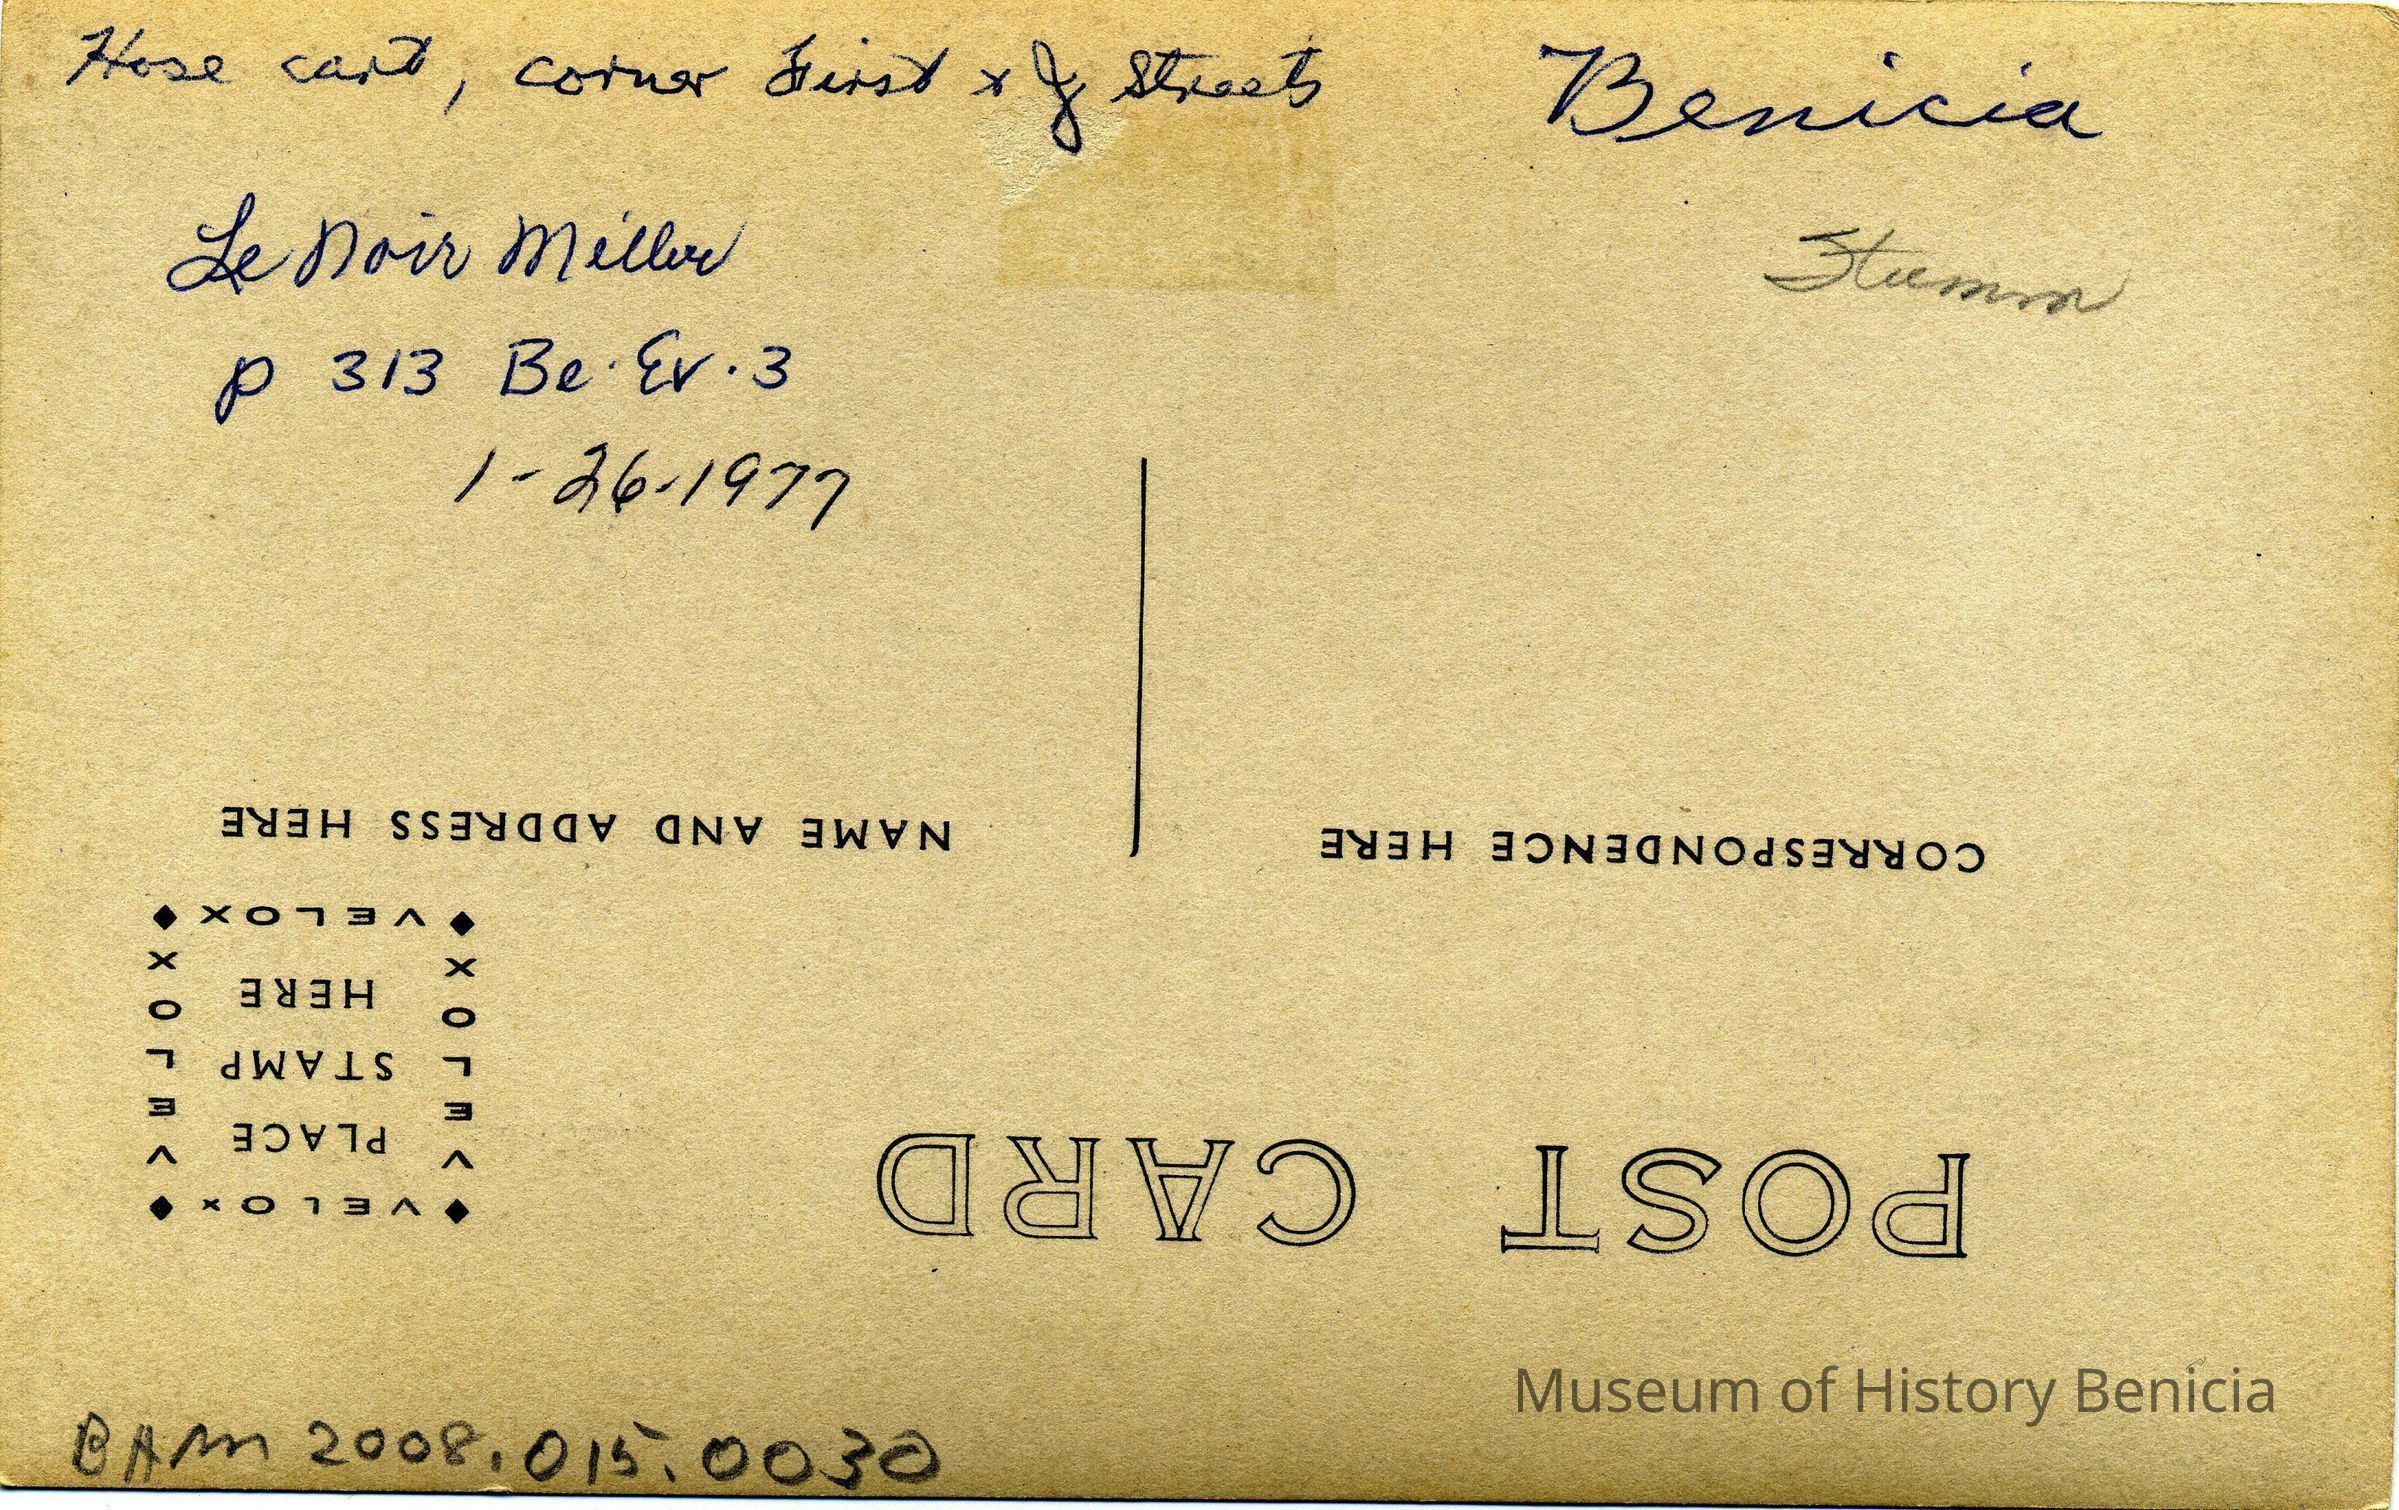 Hose cart, corner First & J Streets
Benicia
Le Noir Miller
Stumm
p 313 Be. Ev. 3
1-26-1977
NAME AND ADDRESS HERE
CORRESPONDENCE HERE
VELOX
VELOX
VELOX
VELOX
PLACE
STAMP
HERE
POST CARD
Museum of History Benicia
BAM 2008.015.0030